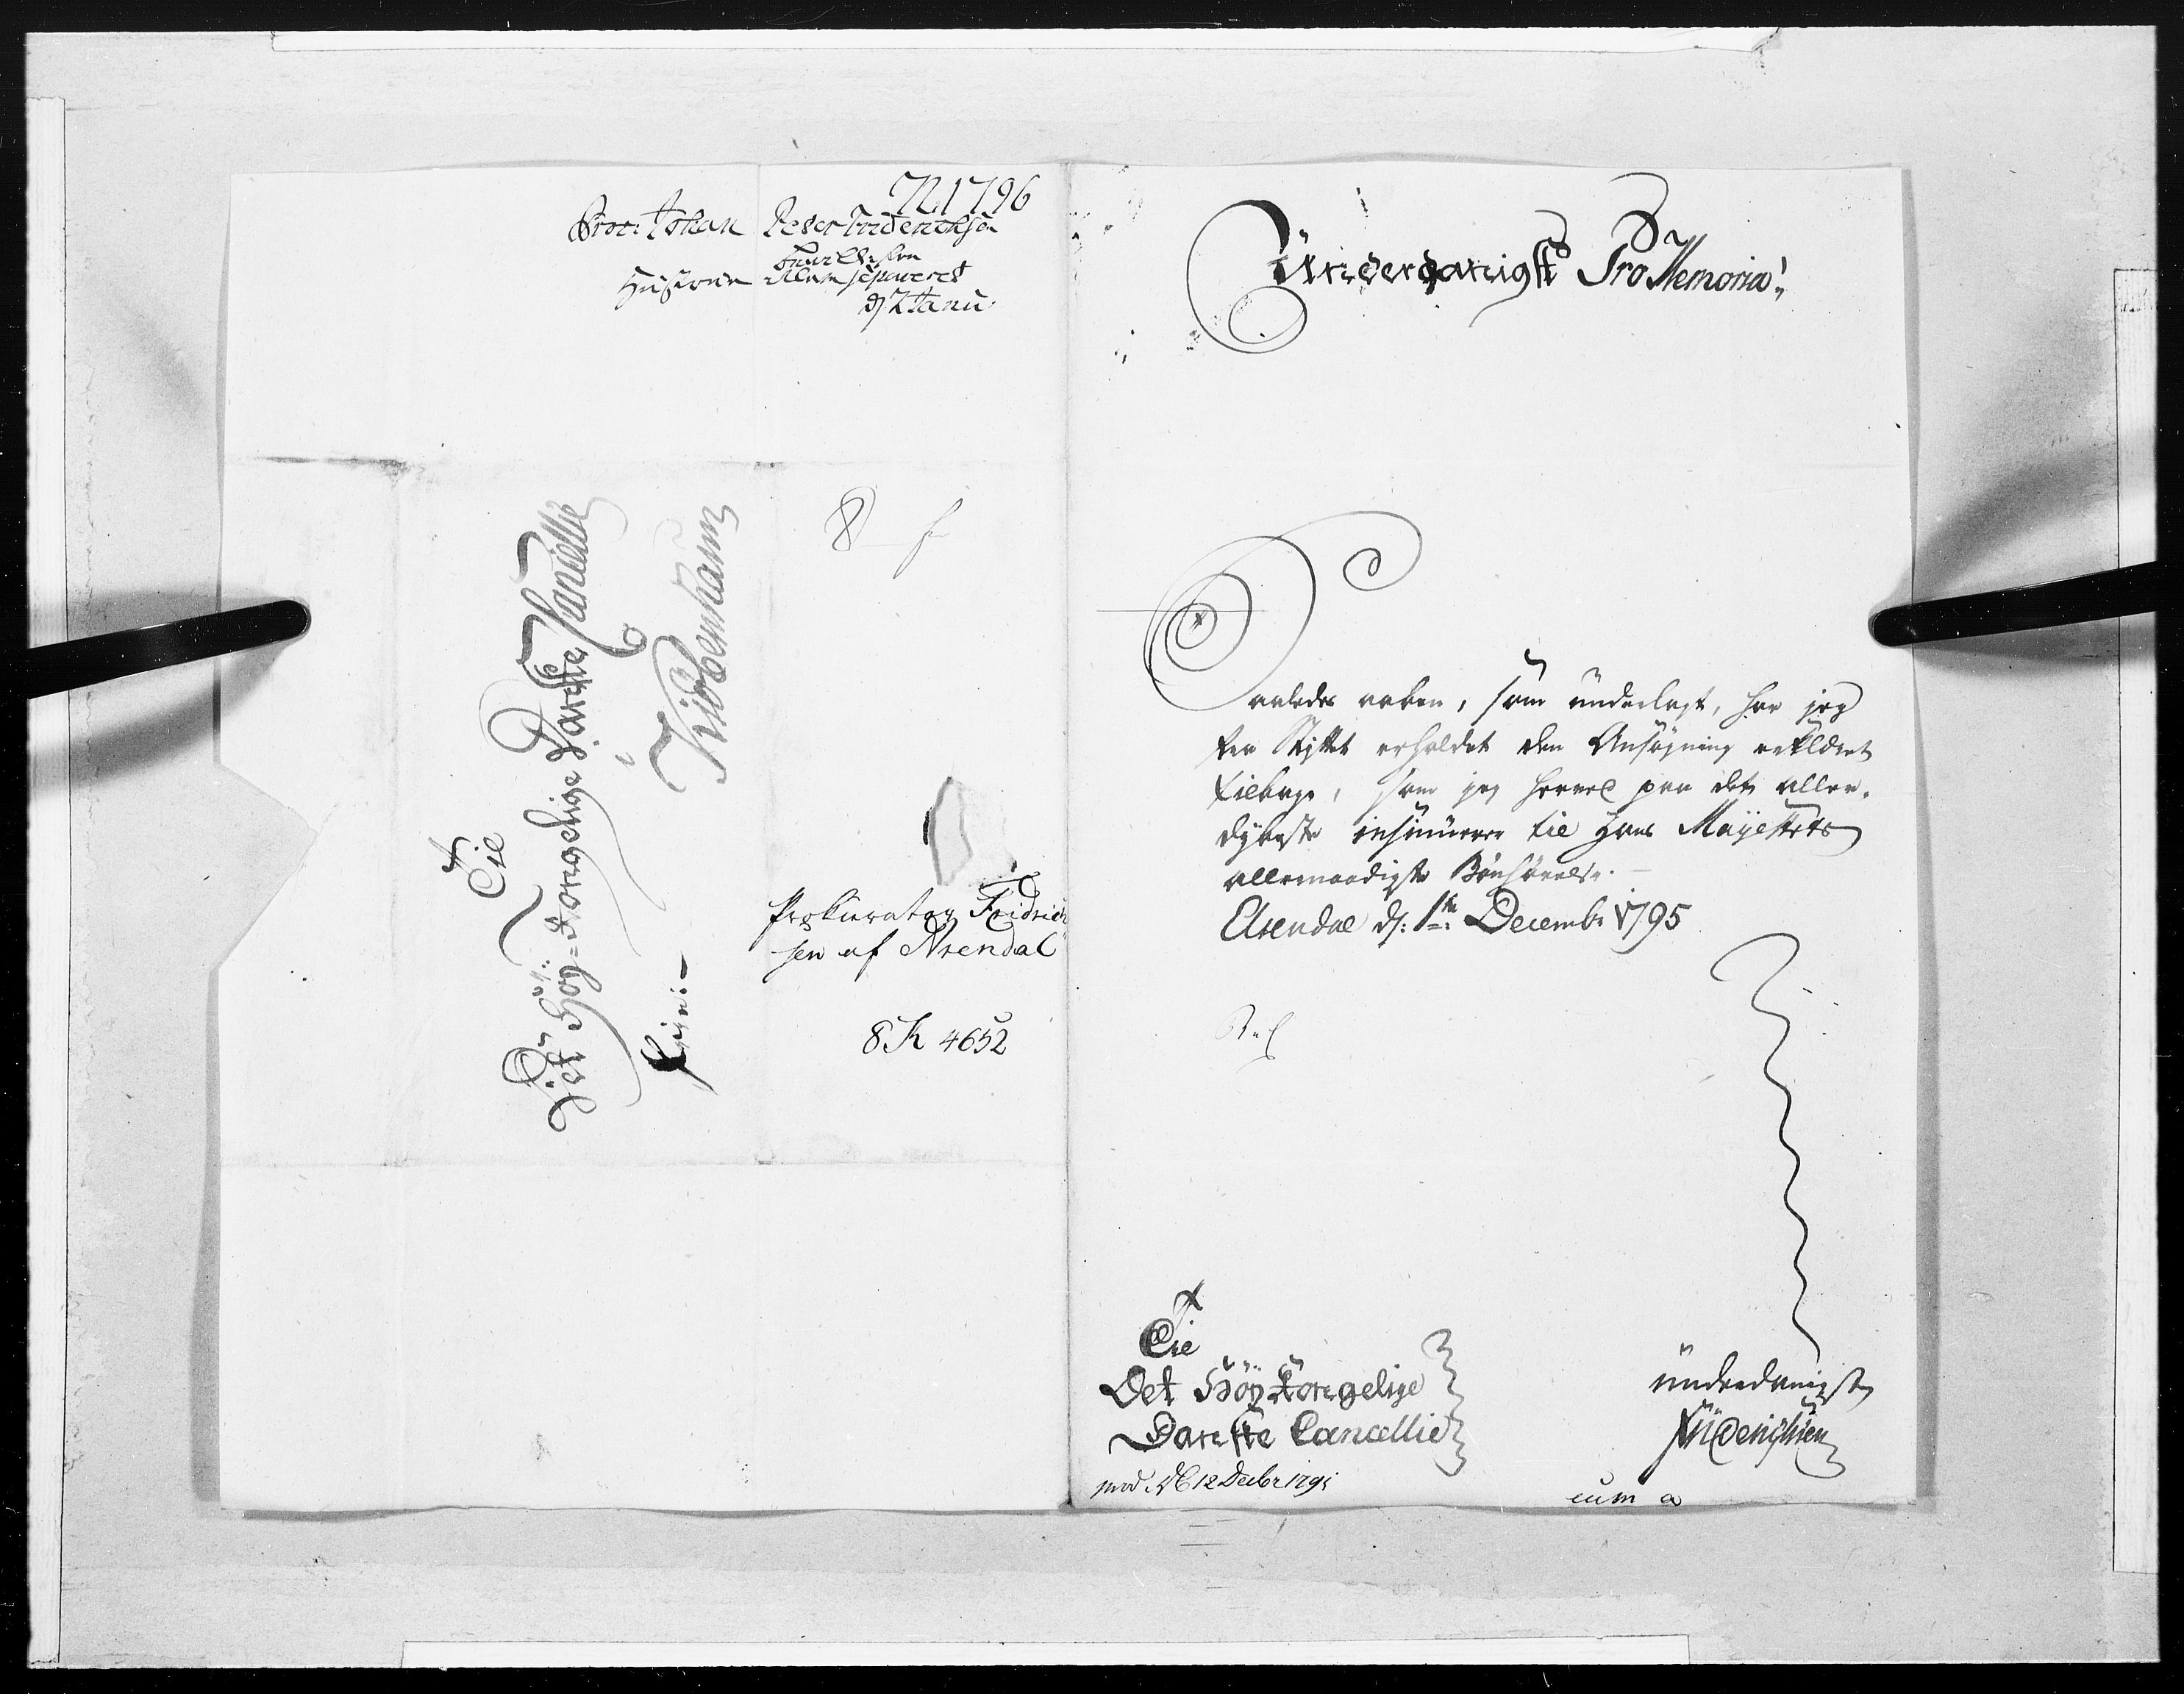 72 1796
Proc: Johan Peder Friderichsen
Hustrue separeret
d 2 Janu:
Til
Det Höy-Kongelige Danske Cancellie
i
Kiöbenhavn
8 f
Prokurator Fridrich
sen af Arendal
8 K 4652
Underdanigst Pro Memoria!
aaledes aaben, som underlagt, har jeg
fra Stiftet erholdet den Ansøgning erklæret
tilbage, som jeg herved paa det aller-
dybeste insinuerer til Hans Mayestets
allernaadigste Bönhörelse.
Arendal d: 1te Decembr 1795
Til
Det Höy Kongelige
Danske Cancellie
underdanigst
Friderichsen
prod. d 12 Decbr 1795
cum a